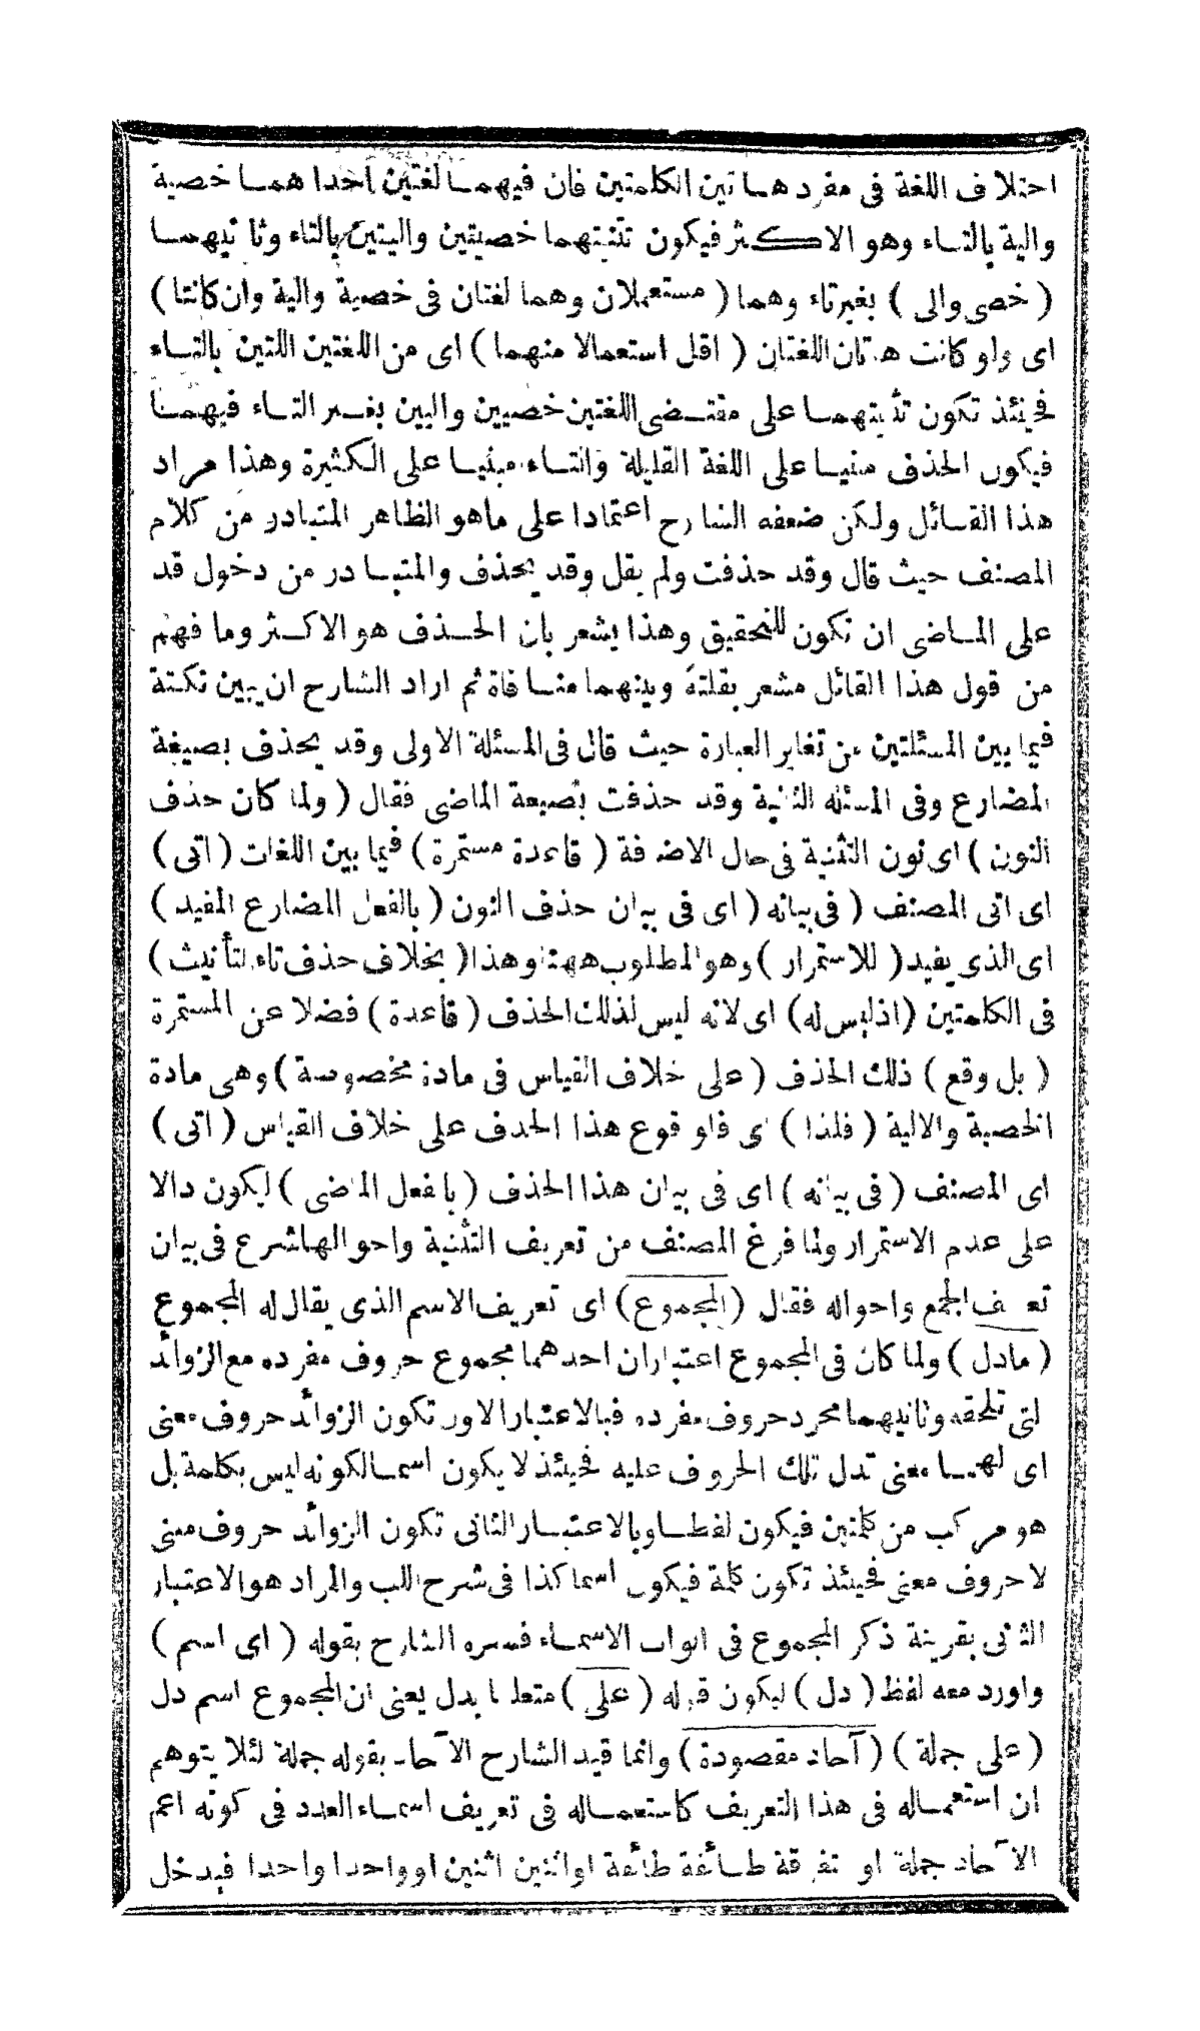 اختلاف اللغة فى مفرد هاتين الكلمتين فان فيهما لغتين احداهما خصية
والية بالتاء وهو الاكثر فيكون تثنيتهما خصيتين واليتين بالتاء وثانيهما
( خصى والى ) بغير تاء وهما ( مستعملان وهما لغتان فى خصية والية وان كانتا )
اى ولو كانت هاتان اللغتان ( اقل استعمالا منهما ) اى من اللغتين اللتين بالتاء
فحينئذ تكون تثنيتهما على مقتضى اللغتين خصيين واليين بغير التاء فيهما
فيكون الحذف مبنيا على اللغة القليلة والتاء مبنيا على الكثيرة وهذا مراد
هذا القائل ولكن ضعفه الشارح اعتمادا على ماهو الظاهر المتبادر من كلام
المصنف حيث قال وقد حذفت ولم يقل وقد يحذف والمتبادر من دخول قد
على الماضى ان تكون للتحقيق وهذا يشعر بان الحذف هو الاكثر وما فهم
من قول هذا القائل مشعر بقلته وبينهما منافاة ثم اراد الشارح ان يبين نكتة
فيما بين المسئلتين من تغاير العبارة حيث قال فى المسئلة الاولى وقد يحذف بصيغة
المضارع وفى المسئلة الثانية وقد حذفت بصيغة الماضى فقال ( ولما كان حذف
النون ) اى نون التثنية فى حال الاضافة ( قاعدة مستمرة ) فيما بين اللغات ( اتى )
اى اتى المصنف ( فى بيانه ( اى فى بيان حذف النون ( بالفعل المضارع المفيد )
اى الذى يفيد ( للاستمرار ) وهو المطلوب ههنا وهذا ( بخلاف حذف تاء التأنيث )
فى الكلمتين ( اذ ليس له ) اى لانه ليس لذلك الحذف ( قاعدة ) فضلا عن المستمرة
( بل وقع ) ذلك الحذف ( على خلاف القياس فى مادة مخصوصة ) وهى مادة
الخصية والالية ( فلذا ) اى فلوقوع هذا الحذف على خلاف القياس ( اتى )
اى المصنف ( فى بيانه ) اى فى بيان هذا الحذف ( بالفعل الماضى ) ليكون دالا
على عدم الاستمرار ولما فرغ المصنف من تعريف التثنية واحوالها شرع فى بيان
تعريف الجمع واحواله فقال ( المجموع ) اى تعريف الاسم الذى يقال له المجموع
( مادل ) ولما كان فى المجموع اعتباران احدهما مجموع حروف مفرده مع الزوائد
لتى تلحقه وثانيهما مجرد حروف مفرده فبالاعتبار الاول تكون الزوائد حروف معنى
اى لها معنى تدل تلك الحروف عليه فحينئذ لا يكون اسما لكونه ليس بكلمة بل
هو مركب من كلمتين فيكون لفظا وبالاعتبار الثانى تكون الزوائد حروف مبنى
لا حروف معنى فحينئذ تكون كلمة فيكون اسما كذا فى شرح اللب والمراد هو الاعتبار
الثانى بقرينة ذكر المجموع فى ابواب الاسماء فسره الشارح بقوله ( اى اسم )
واورد معه لفظ ( دل ) ليكون قوله ( على ) متعلقا بدل يعنى ان المجموع اسم دل
( على جملة ) ( آحاد مقصودة ) وانما قيد الشارح الآحاد بقوله جملة لئلا يتوهم
ان استعماله فى هذا التعريف كاستعماله فى تعريف اسماء العدد فى كونه اعم
الآحاد جملة او متفرقة طائفة طائفة او اثنين اثنين او واحدا واحدا فيدخل